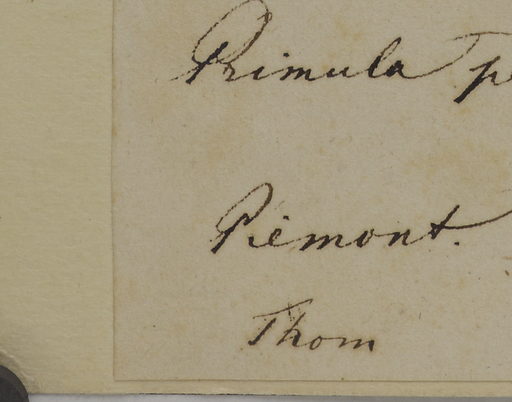 Primula
Piemont.
Thom